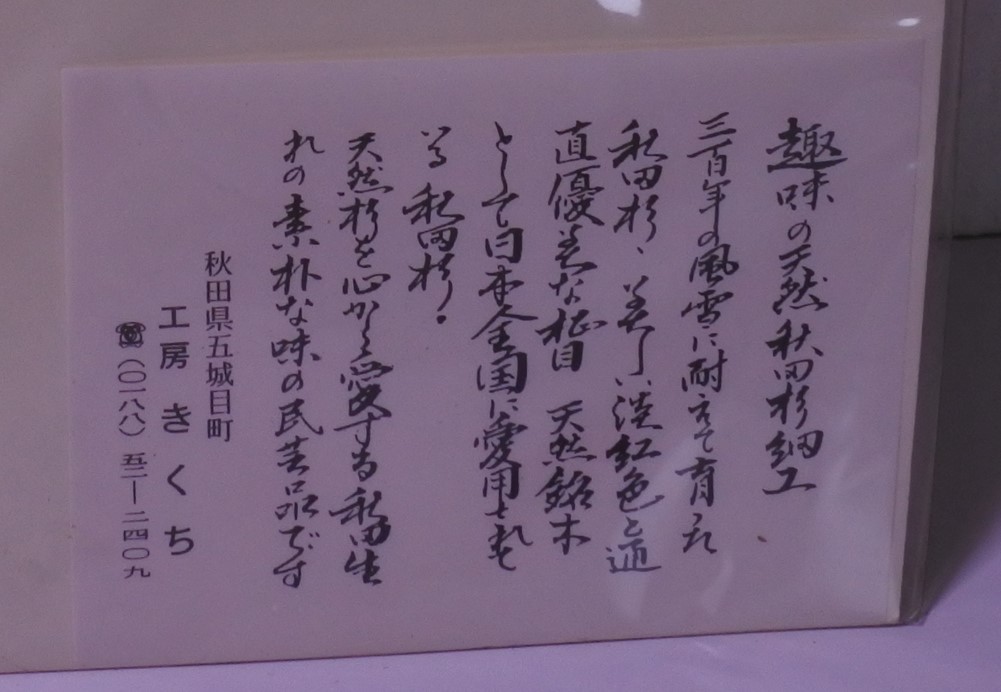 趣味の天然秋田杉細工
三百年の風雪に耐えて育った
秋田杉、美しい淡紅色と通
直優美な柾目 天然銘木
として日本全国に愛用されて
いる秋田杉。
天然杉を心から愛する秋田生
れの素朴な味の民芸品です
秋田県五城目町
工房きくち
☎(〇一八八)五二―二四〇九